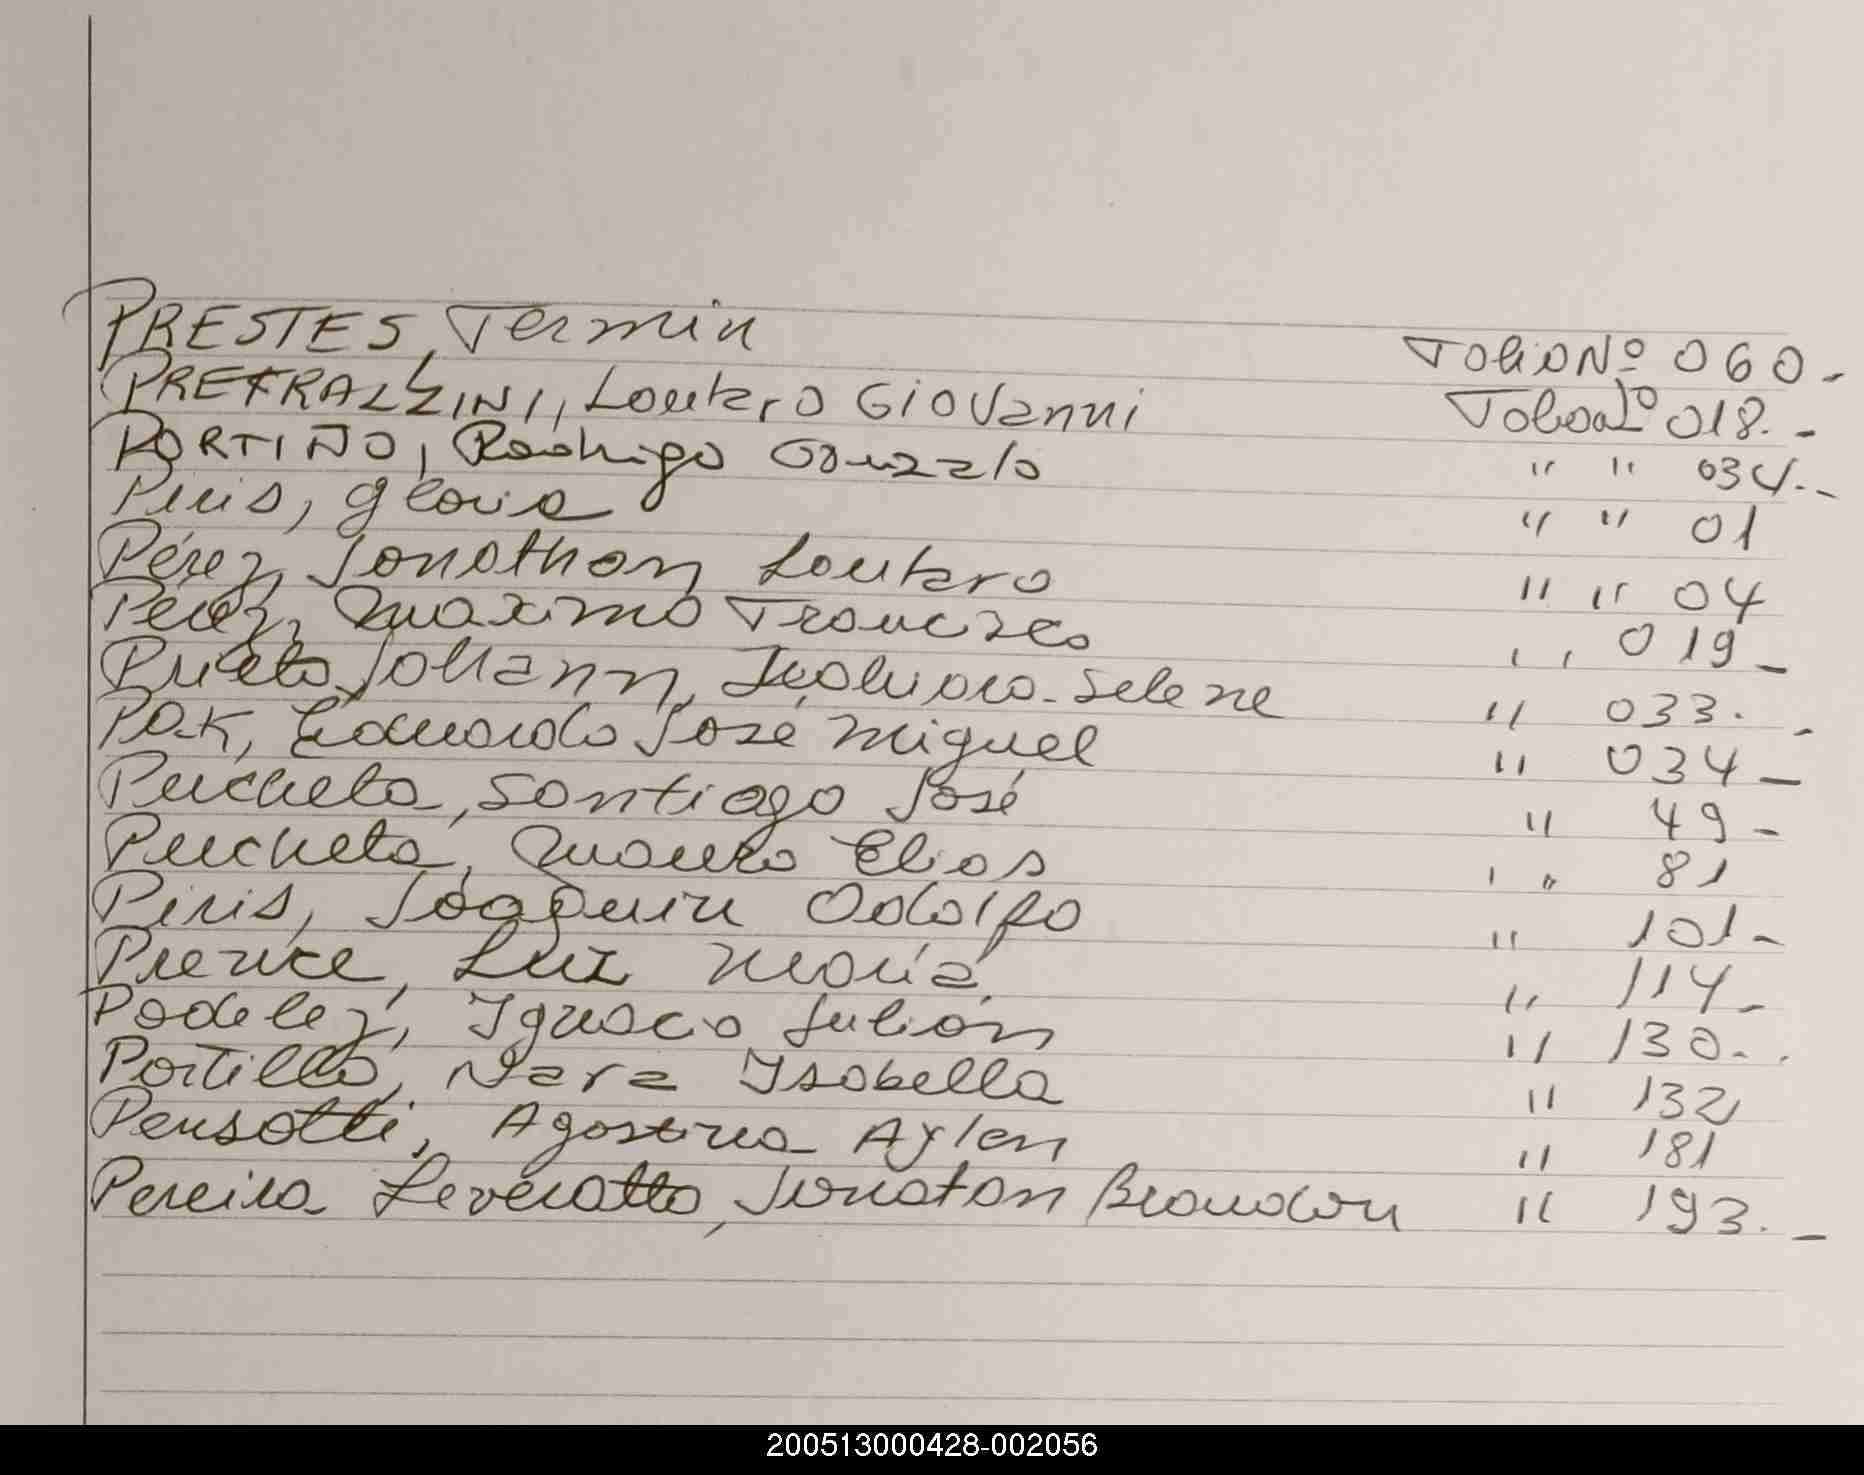 PRESTES, Fermin Folio Nº 060.-
PREFRAZZINI, Lautaro Giovanni Folio Nº 018.-
PORTIÑO, Rodrigo Gonzalo " " 034.-
Piris, Gloria " " 01
Pérez, Jonathan Lautaro " " 04
Pérez, Maximo Francisco " " 019-
Prieto Johann, Selene " 033.-
PAK, Eduardo José Miguel " 034-
Pucheta, Santiago José " 49-
Pucheta, Mauro Elias " " 81
Piris, Joaquin Adolfo " 101-
Pierre, Luz María " 114-
Podeley, Ignacio Julián " 130-.
Portillo, Nara Isabella " 132
Pensotti, Agostina Aylen " 181
Pereira Leveratto, Jonatan Brandon " 193.-
200513000428-002056